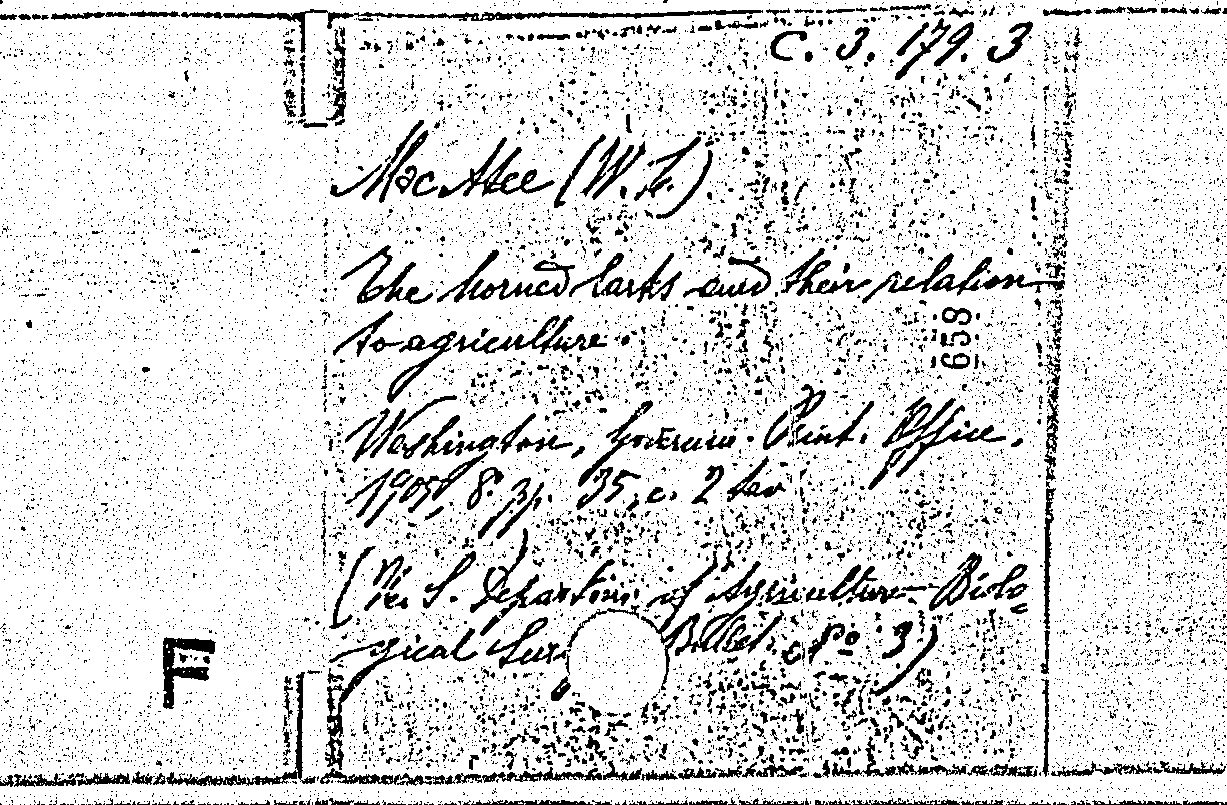 C. 3. 179. 3
MacAtee (W. L.)
The horned larks and their relation
to agriculture.
658
Washington, Governm. Print. Office.
1905, 8. pp. 35, c. 2 tav
S. Departm. of Agriculture Biolo-
gical Sur Bullet. No 3)
F